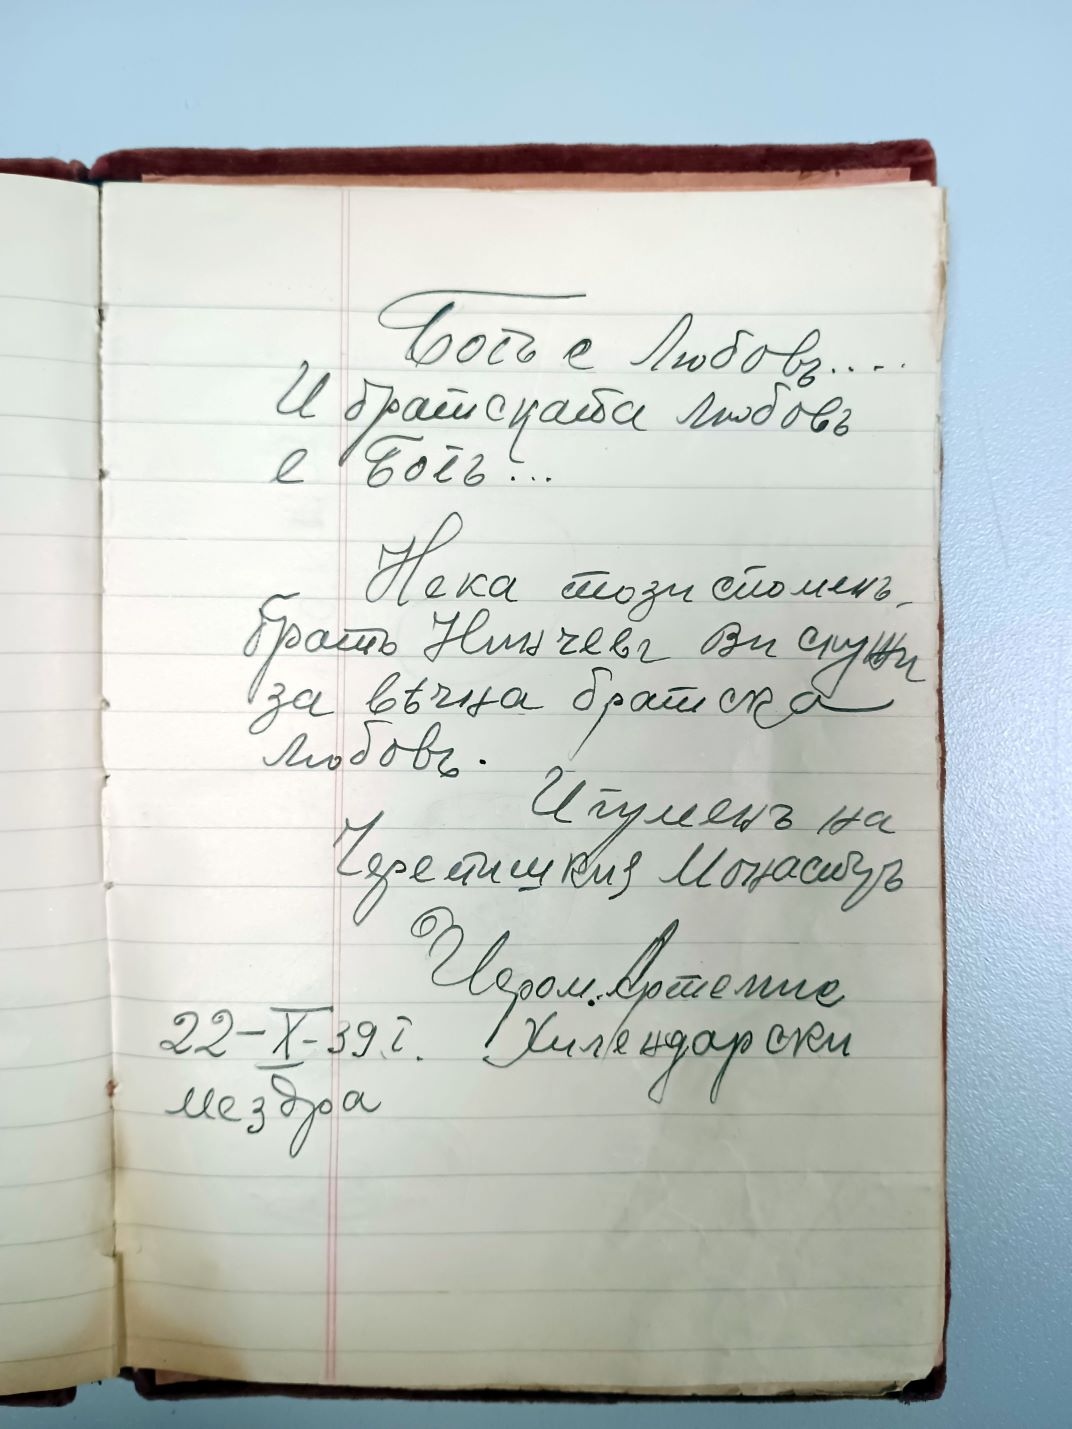 Богъ е Любовь....
И братската любовь
е Богъ...
Нека този споменъ,
братъ Нинчевъ Ви служи
за вѣчна братска
любовь.
Игуменъ на
Черепишкия Монастиръ
Иером. Артемие
22-X-39 г. Хилендарски
Мездра